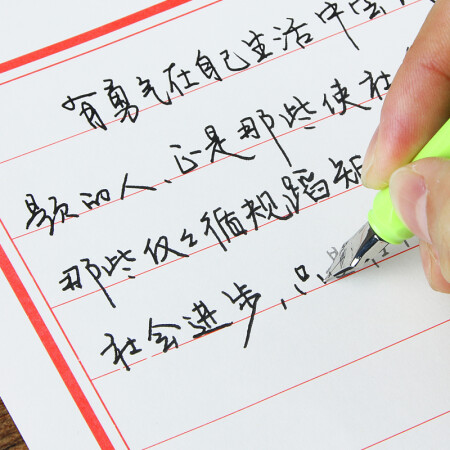 有勇气在自己生活中尝
题的人、正是那些使社
那些仅仅循规蹈矩
社会进步,只